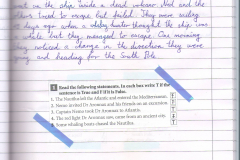 out on the ship inside a dead volcano. Ned and the
others tried to escape but failed. They were sailing
the ship ago when a whaling hunter thought the ship was
a whale but they managed to escape. One morning
they noticed a change in the direction they were
going and heading for the South Pole.
Read the following statements. In each box write T if the
sentence is True and F if it is False.
1. The Nautilus left the Atlantic and entered the Mediterranean. T
2. Nemo invited Dr Aronnax and his friends on an excursion.
3. Captain Nemo took Dr Aronnax to Atlantis.
4. The red light Dr Aronnax saw, came from an ancient city.
5. Some whaling boats chased the Nautilus.